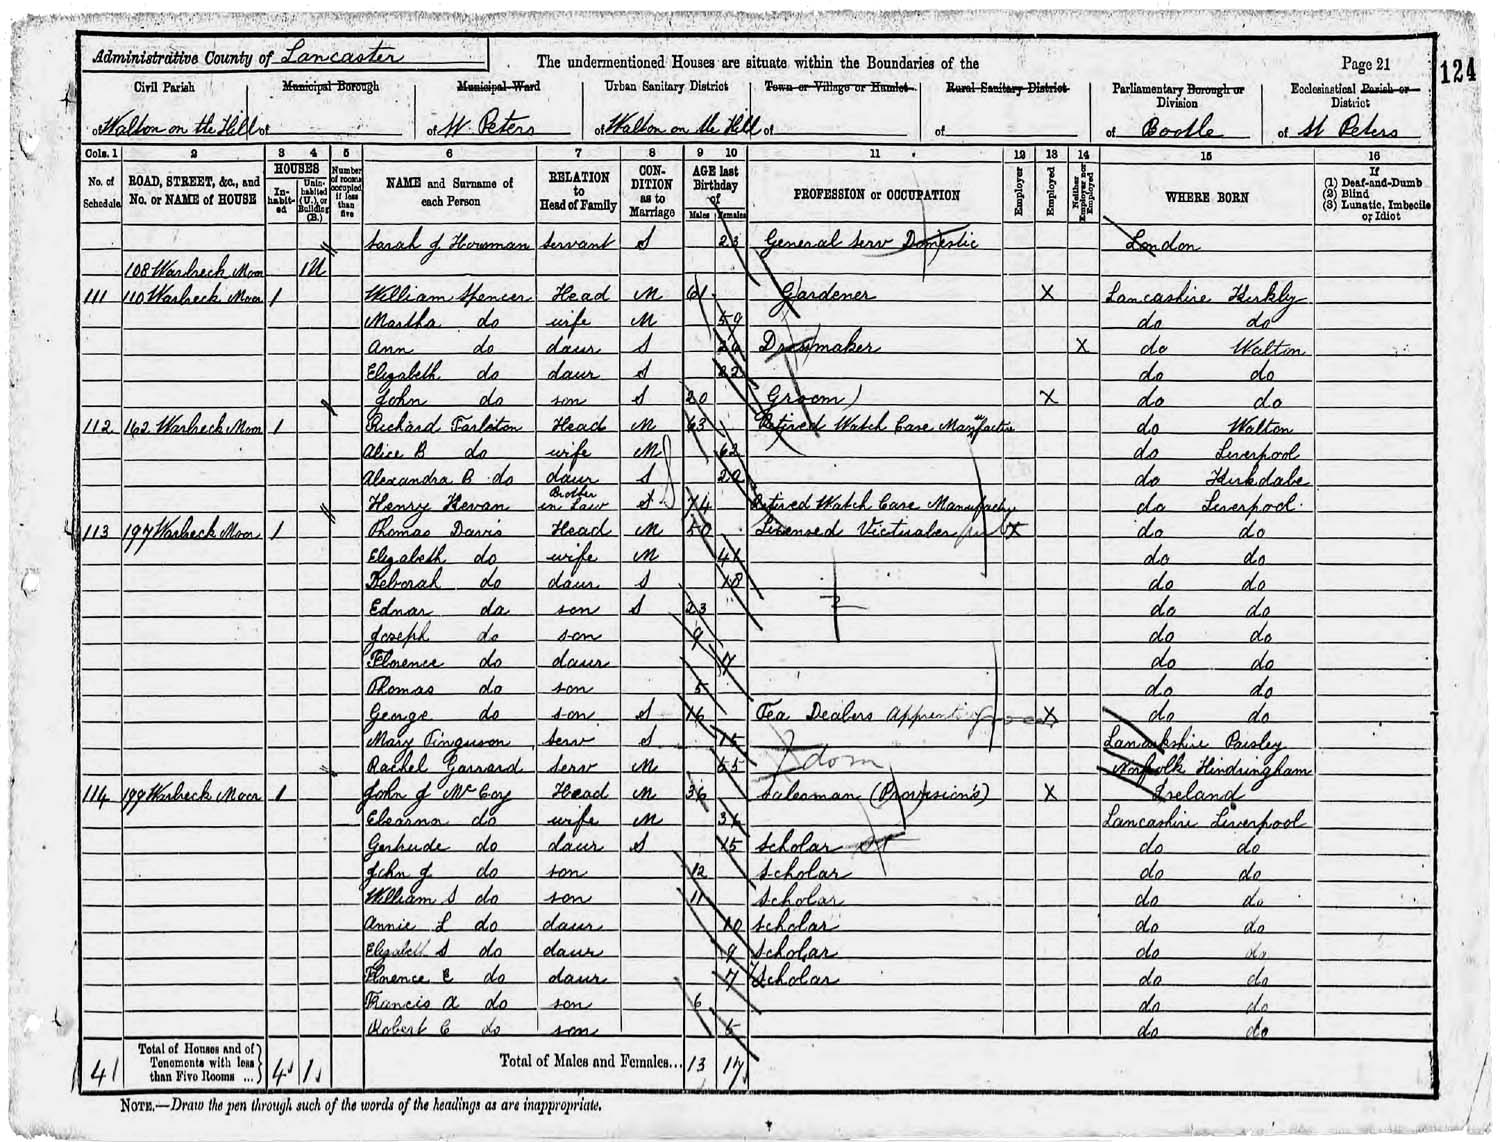 Administrative County of Lancaster
The undermentioned Houses are situate within the Boundaries of the
Page 21
124
Civil Parish Municipal Borough Municipal Ward Urban Sanitary District Town or Village or Hamlet Rural Sanitary District Parliamentary Borough or Division Ecclesiastical Parish or District
of Walton on the Hill of of St. Peters of Walton on the Hill of of of Bootle of St Peters
Cols. 1 2 3 4 5 6 7 8 9 10 11 12 13 14 15 16
No. of Schedule ROAD, STREET, &c., and No. or NAME of HOUSE HOUSES In-habit-ed Unin-habited (U.), or Building (B.) Number of rooms occupied if less than five NAME and Surname of each Person RELATION to Head of Family CON-DITION as to Marriage AGE last Birthday of Males Females PROFESSION or OCCUPATION Employer Employed Neither Employer nor Employed WHERE BORN If (1) Deaf-and-Dumb (2) Blind (3) Lunatic, Imbecile or Idiot
Sarah J Houseman Servant S 23 General Serv Domestic London
108 Warbreck Moor 1U
111 110 Warbreck Moor 1 William Spencer Head M 61 Gardener X Lancashire Kirkby
Martha do wife M 59 do do
Ann do daur S 26 Dressmaker X do Walton
Elizabeth do daur S 22 do do
John do son S 20 Groom X do do
112 162 Warbreck Moor 1 Richard Tarleton Head M 63 Retired Watch Case Manufactr do Walton
Alice B do wife M 62 do Liverpool
Alexandra B do daur S do Kirkdale
Henry Kevan Brother in Law S 74 Retired Watch Case Manufactr do Liverpool
113 197 Warbreck Moor 1 Thomas Davis Head M 50 Licensed Victualer X do do
Elizabeth do wife M 41 do do
Deborah do daur S 18 do do
Ednar do son S 23 do do
Joseph do son 9 do do
Florence do daur 7 do do
Thomas do son 5 do do
George do son S 16 Tea Dealers Apprentice X do do
Mary Finguson Serv S 15 Lanarkshire Paisley
Rachel Garrard Serv M 55 dom Norfolk Hindringham
114 199 Warbreck Moor 1 John J McCoy Head M 36 Salesman (Provision's) X Ireland
Eleanna do wife M 36 Lancashire Liverpool
Gertrude do daur S 15 Scholar do do
John J do son 12 Scholar do do
William S do son 11 Scholar do do
Annie L do daur 10 Scholar do do
Elizabeth S do daur 9 Scholar do do
Florence E do daur 7 Scholar do do
Francis A do son 6 do do
Robert C do son 5 do do
4 Total of Houses and of Tenements with less than Five Rooms ... 4 1 Total of Males and Females... 13 17
NOTE.—Draw the pen through such of the words of the headings as are inappropriate.